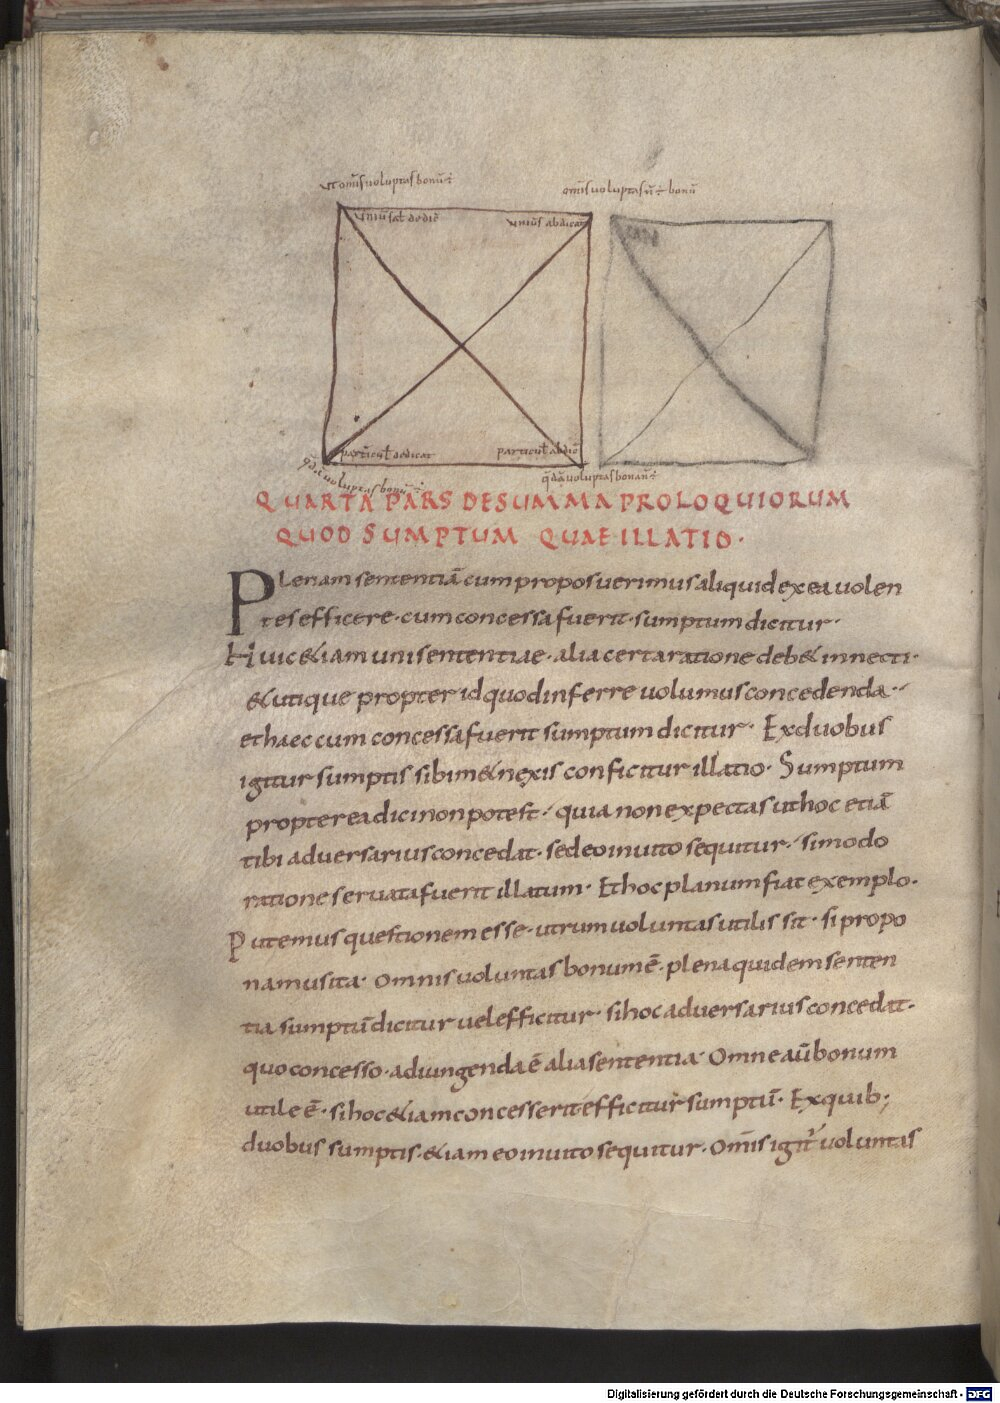 ut om̅s uoluptas bonu̅ ÷
om̅s uoluptas n̅ ÷ bonu̅
uniu̅sal̅ dedic̅
uniu̅s abdicat
particul̅ dedicat
particul̅ abdic̅
uoluptas bonu̅ ÷
q̅da̅ uoluptas bona n̅ ÷
QUARTA PARS DE SUMMA PROLOQUIORUM
QUOD SUMPTUM QUAE ILLATIO·
Plenam sententia̅ cum proposuerimus aliquid ex ea uolen
tes efficere· cum concessa fuerit· sumptum dicitur·
Huic &iam uni sententiae· alia certa ratione deb& innecti·
& utique propter id quod inferre uolumus concedenda·
et haec cum concessa fuerit sumptum dicitur· Ex duobus
igitur sumptis sibim& nexis conficitur illatio· Sumptum
propterea dici non potest· quia non expectas ut hoc etia̅
tibi aduersarius concedat· sed eo inuito sequitur· si modo
ratione seruata fuerit illatum· Et hoc planum fiat exemplo·
Putemus questionem esse· utrum uoluntas utilis sit· si propo
namus ita· Omnis uoluntas bonum e̅· plena quidem senten
tia sumptu̅ dicitur uel efficitur· si hoc aduersarius concedat·
quo concesso· adiungenda e̅ alia sententia· Omne au̅ bonum
utile e̅· si hoc &iam concesserit efficitur sumptu̅· Ex quib;
duobus sumptis· &iam eo inuito sequitur· Om̅is igit̅ uoluntas
Digitalisierung gefördert durch die Deutsche Forschungsgemeinschaft - DFG